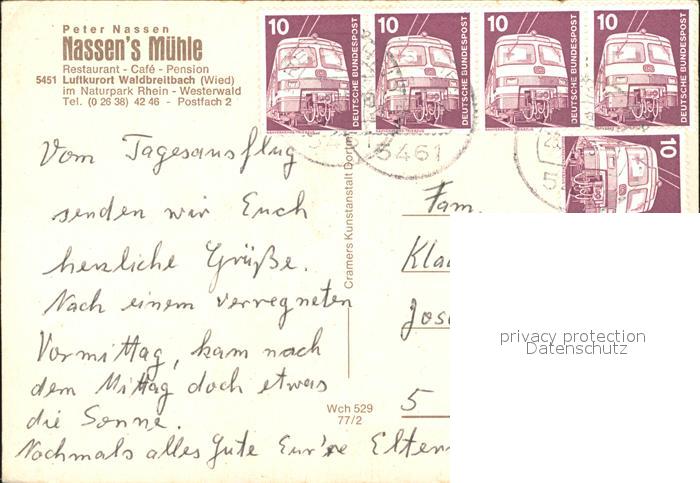 Peter Nassen
Nassen's Mühle
Restaurant - Café - Pension
5451 Luftkurort Waldbreitbach (Wied)
im Naturpark Rhein - Westerwald
Tel. (0 26 38) 42 46 - Postfach 2
10 DEUTSCHE BUNDESPOST
10 DEUTSCHE BUNDESPOST
10 DEUTSCHE BUNDESPOST
10 DEUTSCHE BUNDESPOST
10
5461
Vom Tagesausflug
senden wir Euch
herzliche Grüße.
Nach einem verregneten
Vormittag, kam nach
dem Mittag doch etwas
die Sonne.
Nochmals alles Gute Eur're Eltern
Cramers Kunstanstalt Dortm
Wch 529
77/2
Fam.
Kla
Jose
5
privacy protection
Datenschutz